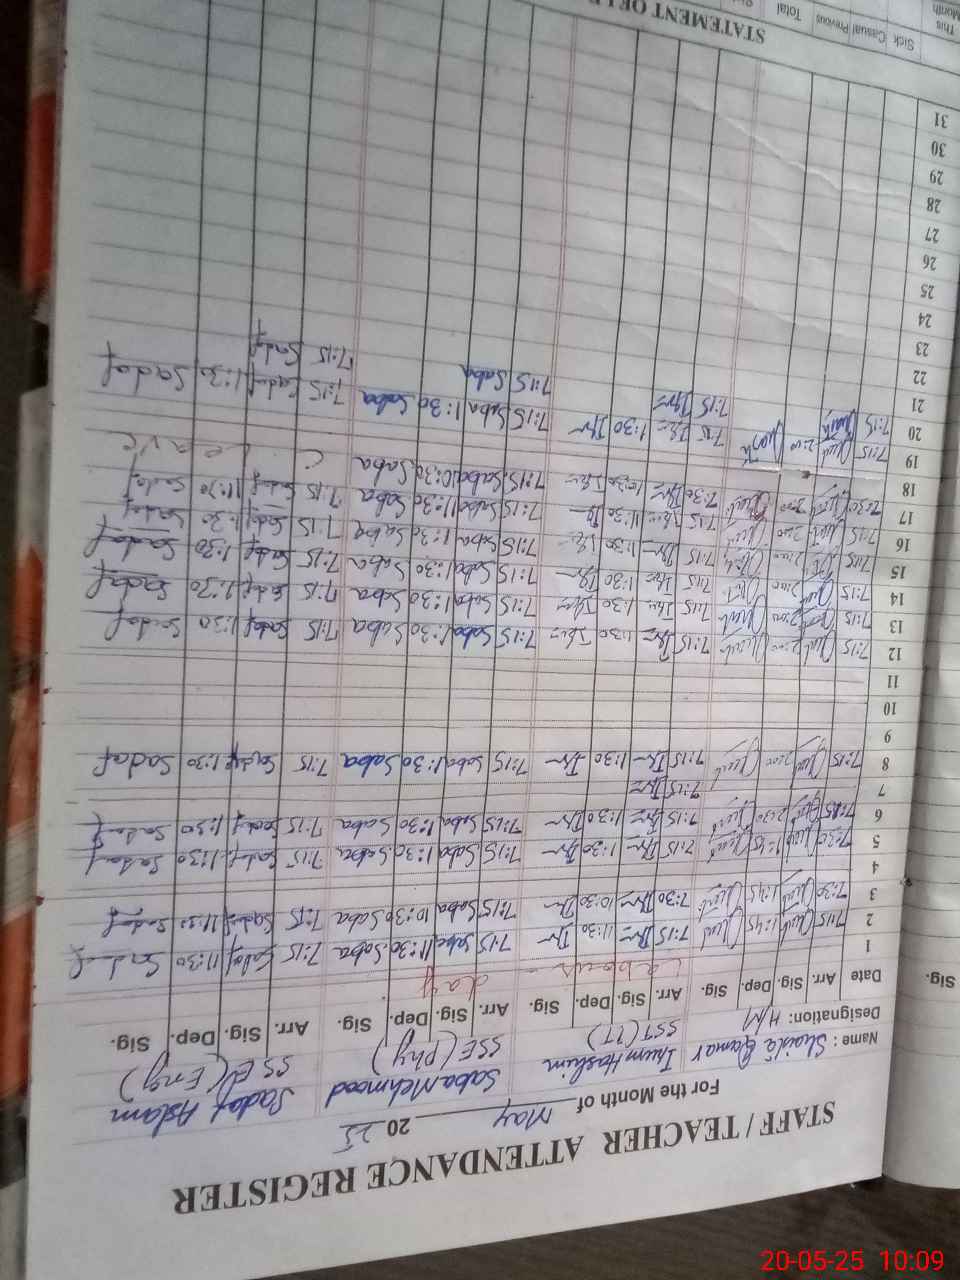 STAFF / TEACHER ATTENDANCE REGISTER
For the Month of May 2025
Name : Shaista Qamar Irum Hashim Saba Mehmood Sadaf Aslam
Designation: H/M SST (IT) SSE (Phy) SSE (Eng)
Date Arr. Sig. Dep. Sig. Arr. Sig. Dep. Sig. Arr. Sig. Dep. Sig. Arr. Sig. Dep. Sig.
1 Labour day
2 7:15 1:45 7:15 11:30 7:15 Saba 11:30 Saba 7:15 Sadaf 11:30 Sadaf
3 7:30 1:45 7:30 10:30 7:15 Saba 10:30 Saba 7:15 Sadaf 11:30 Sadaf
4
5 7:30 1:45 7:15 1:30 7:15 Saba 1:30 Saba 7:15 Sadaf 1:30 Sadaf
6 7:15 2:30 7:15 1:30 7:15 Saba 1:30 Saba 7:15 Sadaf 1:30 Sadaf
7 7:15
8 7:15 2:00 7:15 1:30 7:15 Saba 1:30 Saba 7:15 Sadaf 1:30 Sadaf
9
10
11
12 7:15 2:00 7:15 1:30 7:15 Saba 1:30 Saba 7:15 Sadaf 1:30 Sadaf
13 7:15 2:00 7:15 1:30 7:15 Saba 1:30 Saba 7:15 Sadaf 1:30 Sadaf
14 7:15 2:00 7:15 1:30 7:15 Saba 1:30 Saba 7:15 Sadaf 1:30 Sadaf
15 7:15 2:00 7:15 11:30 7:15 Saba 1:30 Saba 7:15 Sadaf 1:30 Sadaf
16 7:15 2:00 7:15 11:30 7:15 Saba 11:30 Saba 7:15 Sadaf 11:30 Sadaf
17 7:30 2:00 7:30 10:30 7:15 Saba 10:30 Saba Leave
18
19 7:15 2:00 7:15 1:30 7:15 Saba 1:30 Saba 7:15 Sadaf 1:30 Sadaf
20 7:15 7:15 7:15 Saba 7:15 Sadaf
21
22
23
24
25
26
27
28
29
30
31
STATEMENT OF
Sick Casual Previous Total
This Month
Sig.
20-05-25 10:09